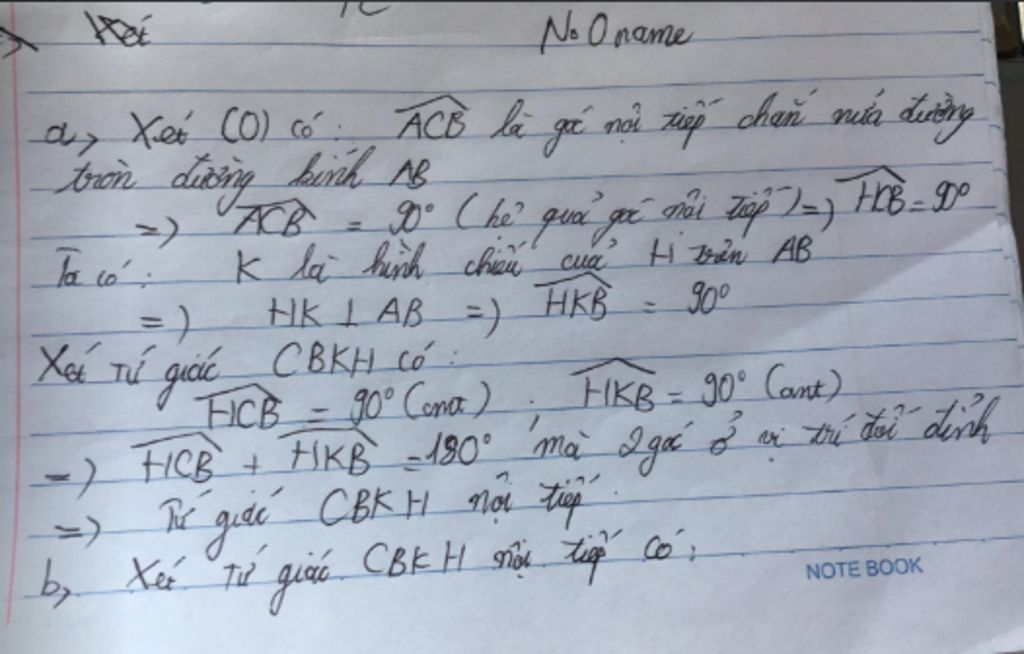 Xét
No Oname
a, Xét (O) có: ACB là góc nội tiếp chắn nửa đường
tròn đường kính AB
=) ACB = 90° (hệ quả góc nội tiếp) =) HCB = 90°
Ta có: K là hình chiếu của H trên AB
=) HK ⊥ AB =) HKB = 90°
Xét tứ giác CBKH có:
HCB = 90° (cmt) ; HKB = 90° (cmt)
=) HCB + HKB = 180° mà 2 góc ở vị trí đối đỉnh
=) Tứ giác CBKH nội tiếp.
b, Xét tứ giác CBKH nội tiếp có:
NOTE BOOK